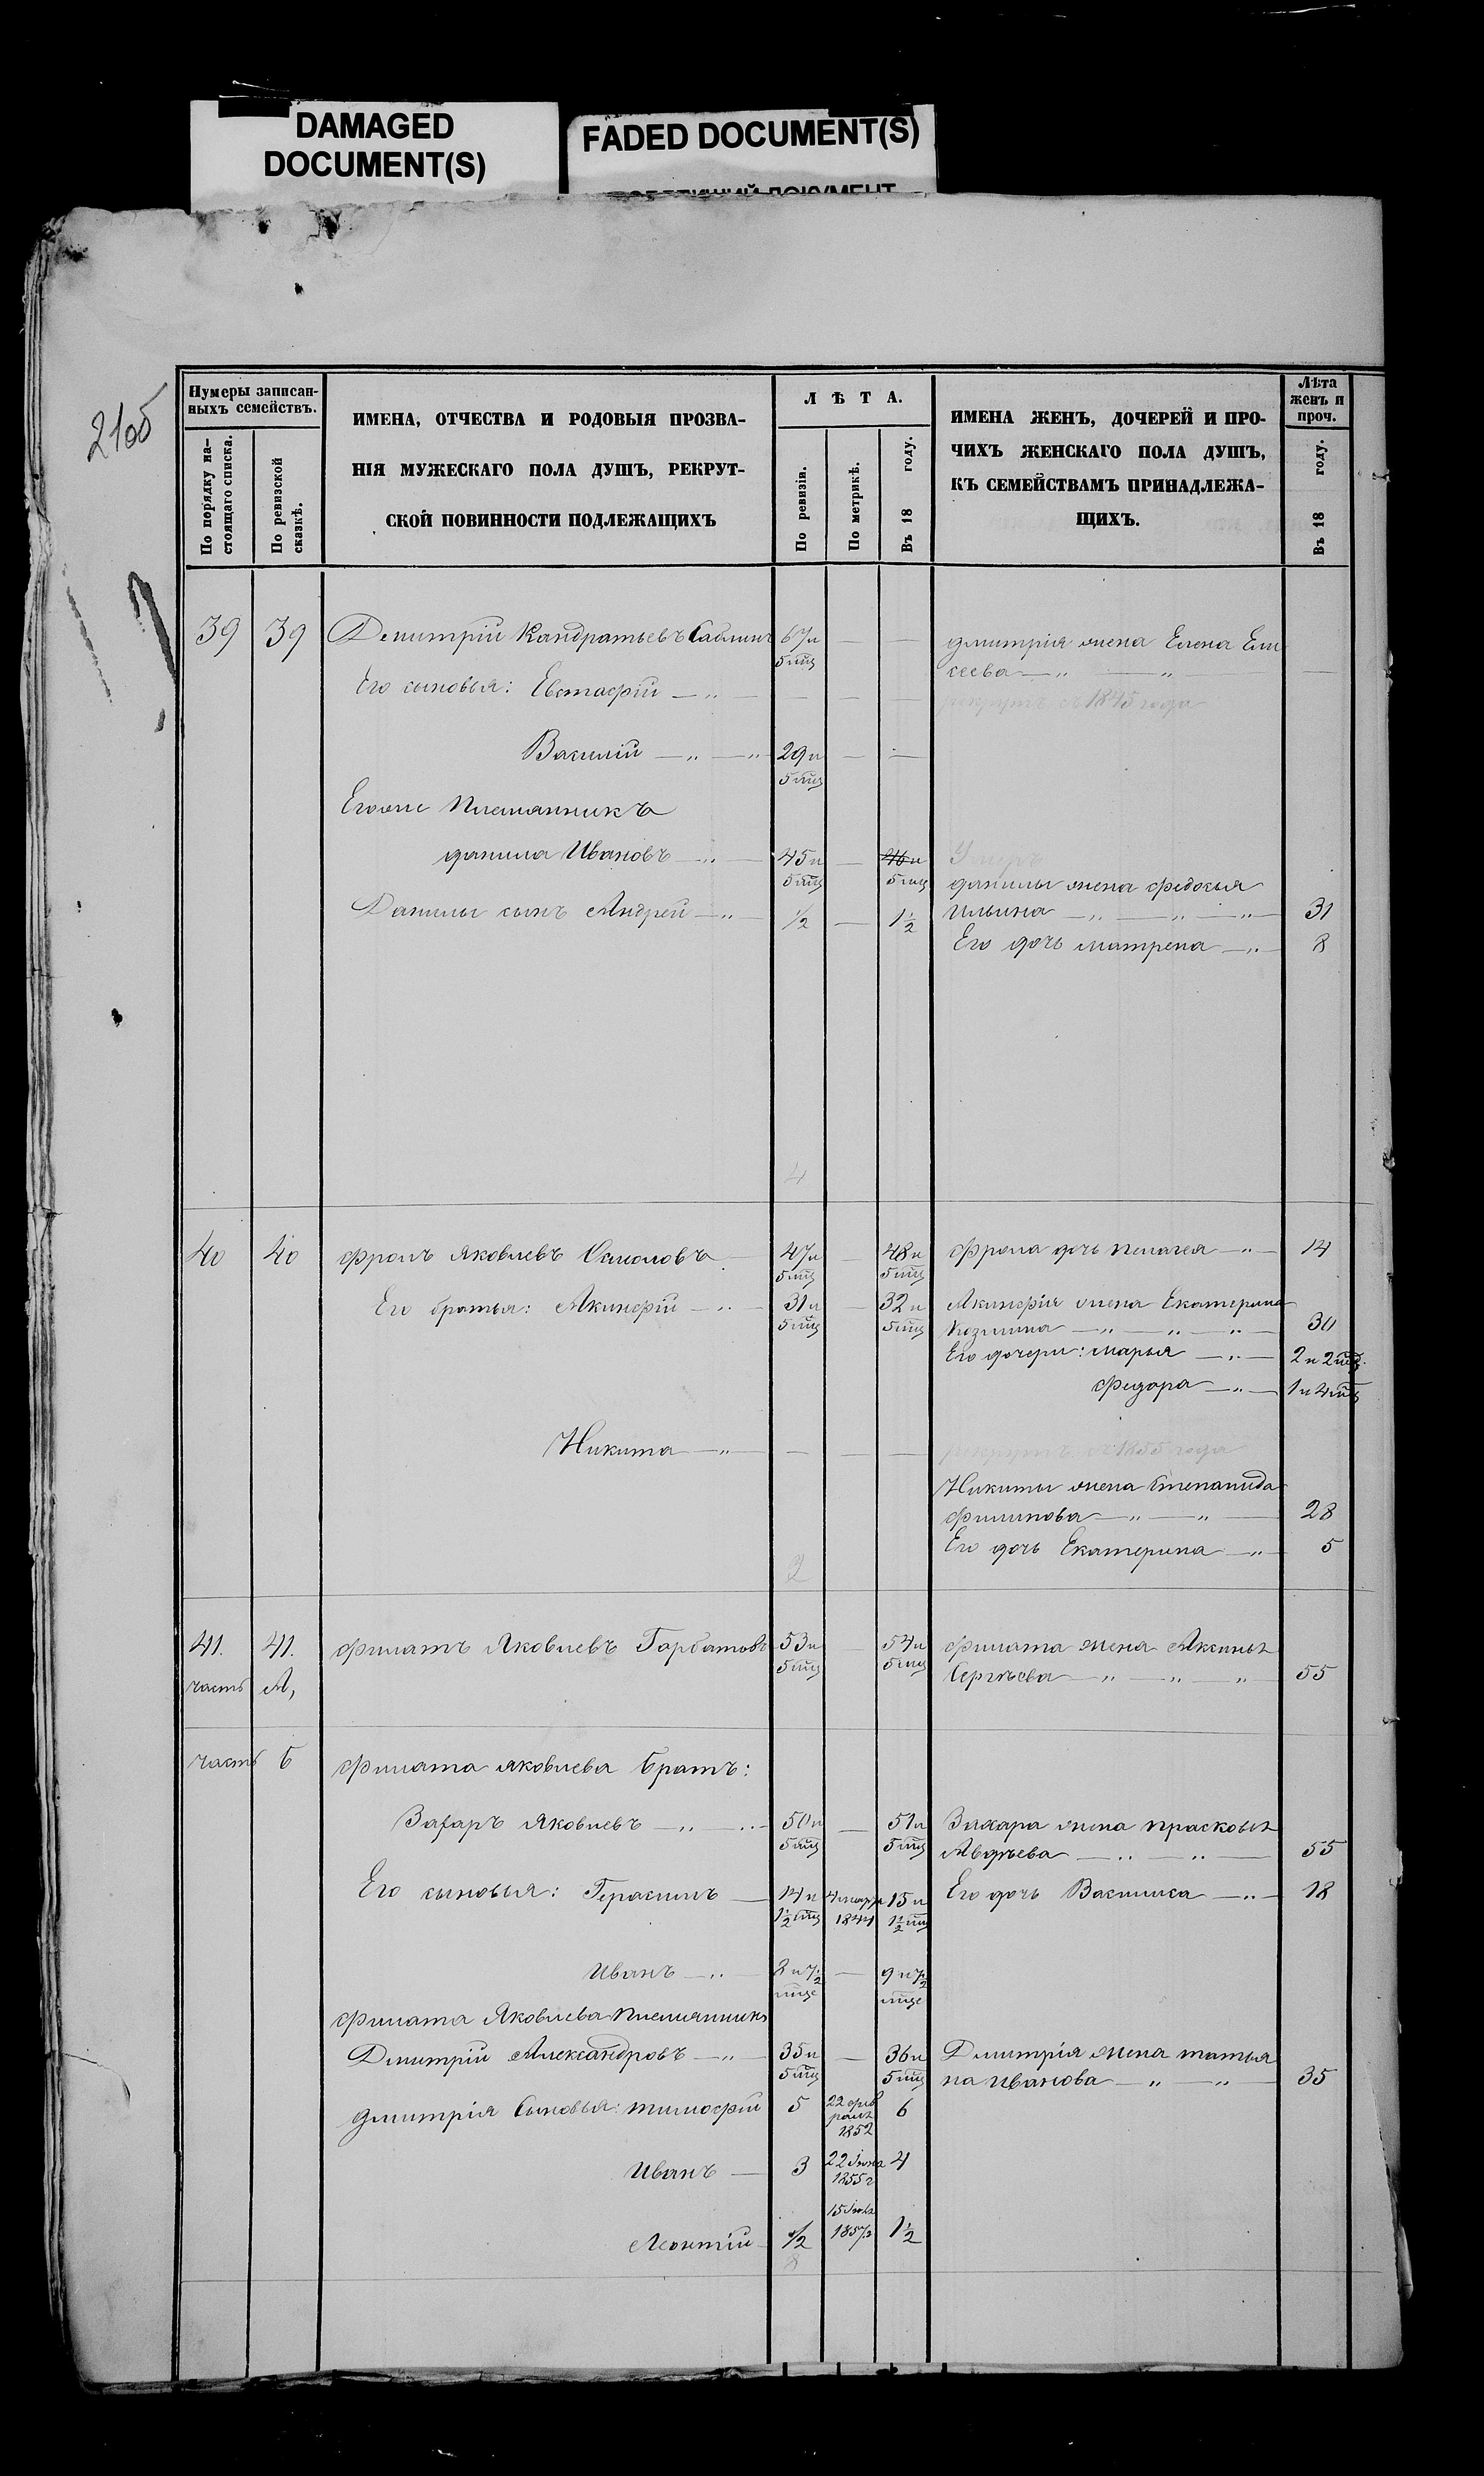 DAMAGED
DOCUMENT(S)
FADED DOCUMENT(S)
2105
Нумеры записан-
ныхъ семействъ.
По порядку на-
стоящаго списка.
По ревизской
сказкѣ.
ИМЕНА, ОТЧЕСТВА И РОДОВЫЯ ПРОЗВА-
НІЯ МУЖЕСКАГО ПОЛА ДУШЪ, РЕКРУТ-
СКОЙ ПОВИННОСТИ ПОДЛЕЖАЩИХЪ
Л Ѣ Т А.
По ревизіи.
По метрикѣ.
Въ 18 году.
ИМЕНА ЖЕНЪ, ДОЧЕРЕЙ И ПРО-
ЧИХЪ ЖЕНСКАГО ПОЛА ДУШЪ,
КЪ СЕМЕЙСТВАМЪ ПРИНАДЛЕЖА-
ЩИХЪ.
Лѣта
женъ и
проч.
Въ 18 году.
39 39 Демитрій Кандратьевъ Саблинъ 67 и — — дмитрія жена Елена Ели
5 мц сеева — „ — „ — —
Его сыновья: Евстафій — „ — — — — рекрутъ с 1845 года
Василій — „ — „ 29 и — —
5 мц
Егоже Племянникъ
данила Ивановъ — „ — 45 и — 46 и Умеръ
5 мц 5 мц данилы жена федосья
Данилы сынъ Андрей — „ 1/2 — 1 1/2 Ильина — „ — „ — „ — 31
Его дочь матрена — „ — 8
4
40 40 фролъ яковлевъ — 47 и — 48 и фрола дочь пелагея — „ — 14
5 мц 5 мц
Его братья: Акинфій — „ — 31 и — 32 и Акинфія жена Екатерина
5 мц 5 мц Козмина — „ — „ — „ 30
Его дочери: марья — „ — 2 и 2 мц.
федора — „ — 1 и 4 мц
Никита — „ — — — — рекрутъ с 1855 года
Никиты жена Степанида
филипова — „ — „ — 28
Его дочь Екатерина — „ — 5
2
41. 41. филатъ Яковлевъ Гарбатовъ 53 и — 54 и филата жена Аксинья
часть А, 5 мц 5 мц Сергѣева — „ — „ — „ 55
часть Б филата яковлева братъ:
Захаръ Яковлевъ — „ — „ 50 и — 51 и Захара жена прасковья
5 мц 5 мц Авдѣева — „ — „ — 55
Его сыновья: Герасимъ — 14 и 4 марта 15 и Его дочь Василиса — „ — 18
1 1/2 мц 1844 1 1/2 мц
Иванъ — „ — 8 и 7 1/2 — 9 и 7 1/2
мце мце
филата Яковлева племянникъ
Дмитрій Александровъ — „ — 35 и — 36 и Дмитрія жена татья
5 мц 5 мц на Иванова — „ — „ — 35
дмитрія Сыновья: тимофей 5 22 фев
раля
1852 6
Иванъ — 3 22 Іюня
1855 г 4
Леонтій 1/2
1857 г 1 1/2
8